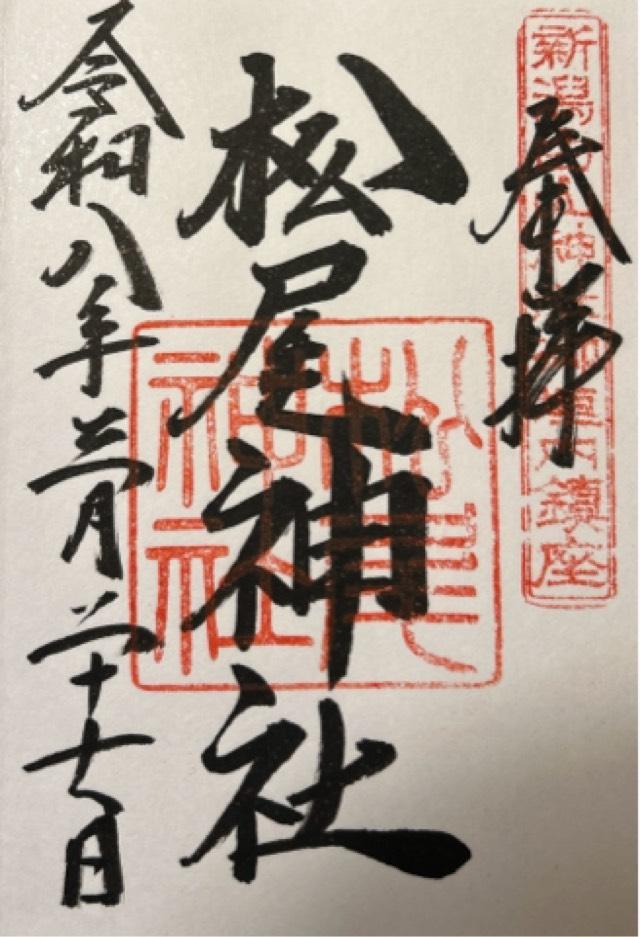 奉拝
松尾神社
松尾神社
令和八年三月二十七日